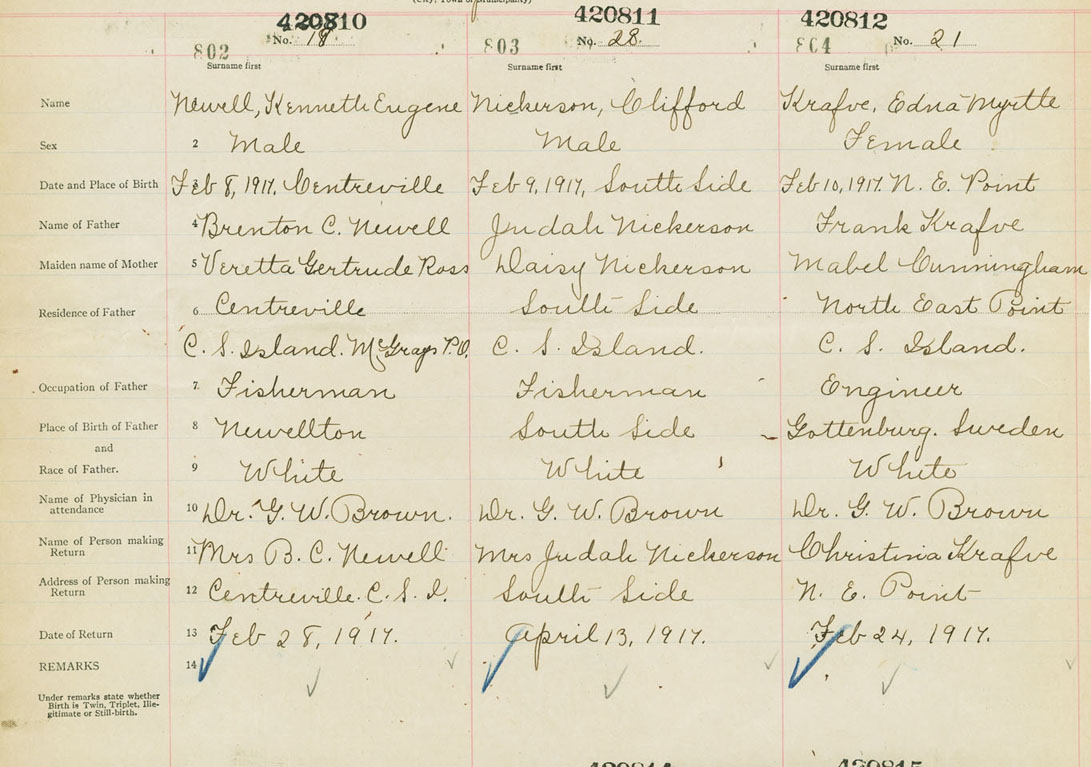 (City, Town or Municipality)
420810 420811 420812
802 No. 18 803 No. 28 804 No. 21
Surname first Surname first Surname first
Name Newell, Kenneth Eugene Nickerson, Clifford Krafve, Edna Myrtle
Sex 2 Male Male Female
Date and Place of Birth 3 Feb 8, 1917, Centreville Feb 9, 1917, South Side Feb 10, 1917. N. E. Point
Name of Father 4 Brenton C. Newell Judah Nickerson Frank Krafve
Maiden name of Mother 5 Veretta Gertrude Ross Daisy Nickerson Mabel Cunningham
Residence of Father 6 Centreville South Side North East Point
C. S. Island. McGrays P.O. C. S. Island. C. S. Island.
Occupation of Father 7. Fisherman Fisherman Engineer
Place of Birth of Father 8 Newellton South Side Gottenburg. Sweden
and
Race of Father. 9 White White White
Name of Physician in attendance 10 Dr. G. W. Brown. Dr. G. W. Brown Dr. G. W. Brown
Name of Person making Return 11 Mrs B. C. Newell Mrs Judah Nickerson Christina Krafve
Address of Person making Return 12 Centreville. C. S. I. South Side N. E. Point
Date of Return 13 Feb 28, 1917. April 13, 1917. Feb 24, 1917.
REMARKS 14
Under remarks state whether
Birth is Twin, Triplet, Ille-
gitimate or Still-birth.